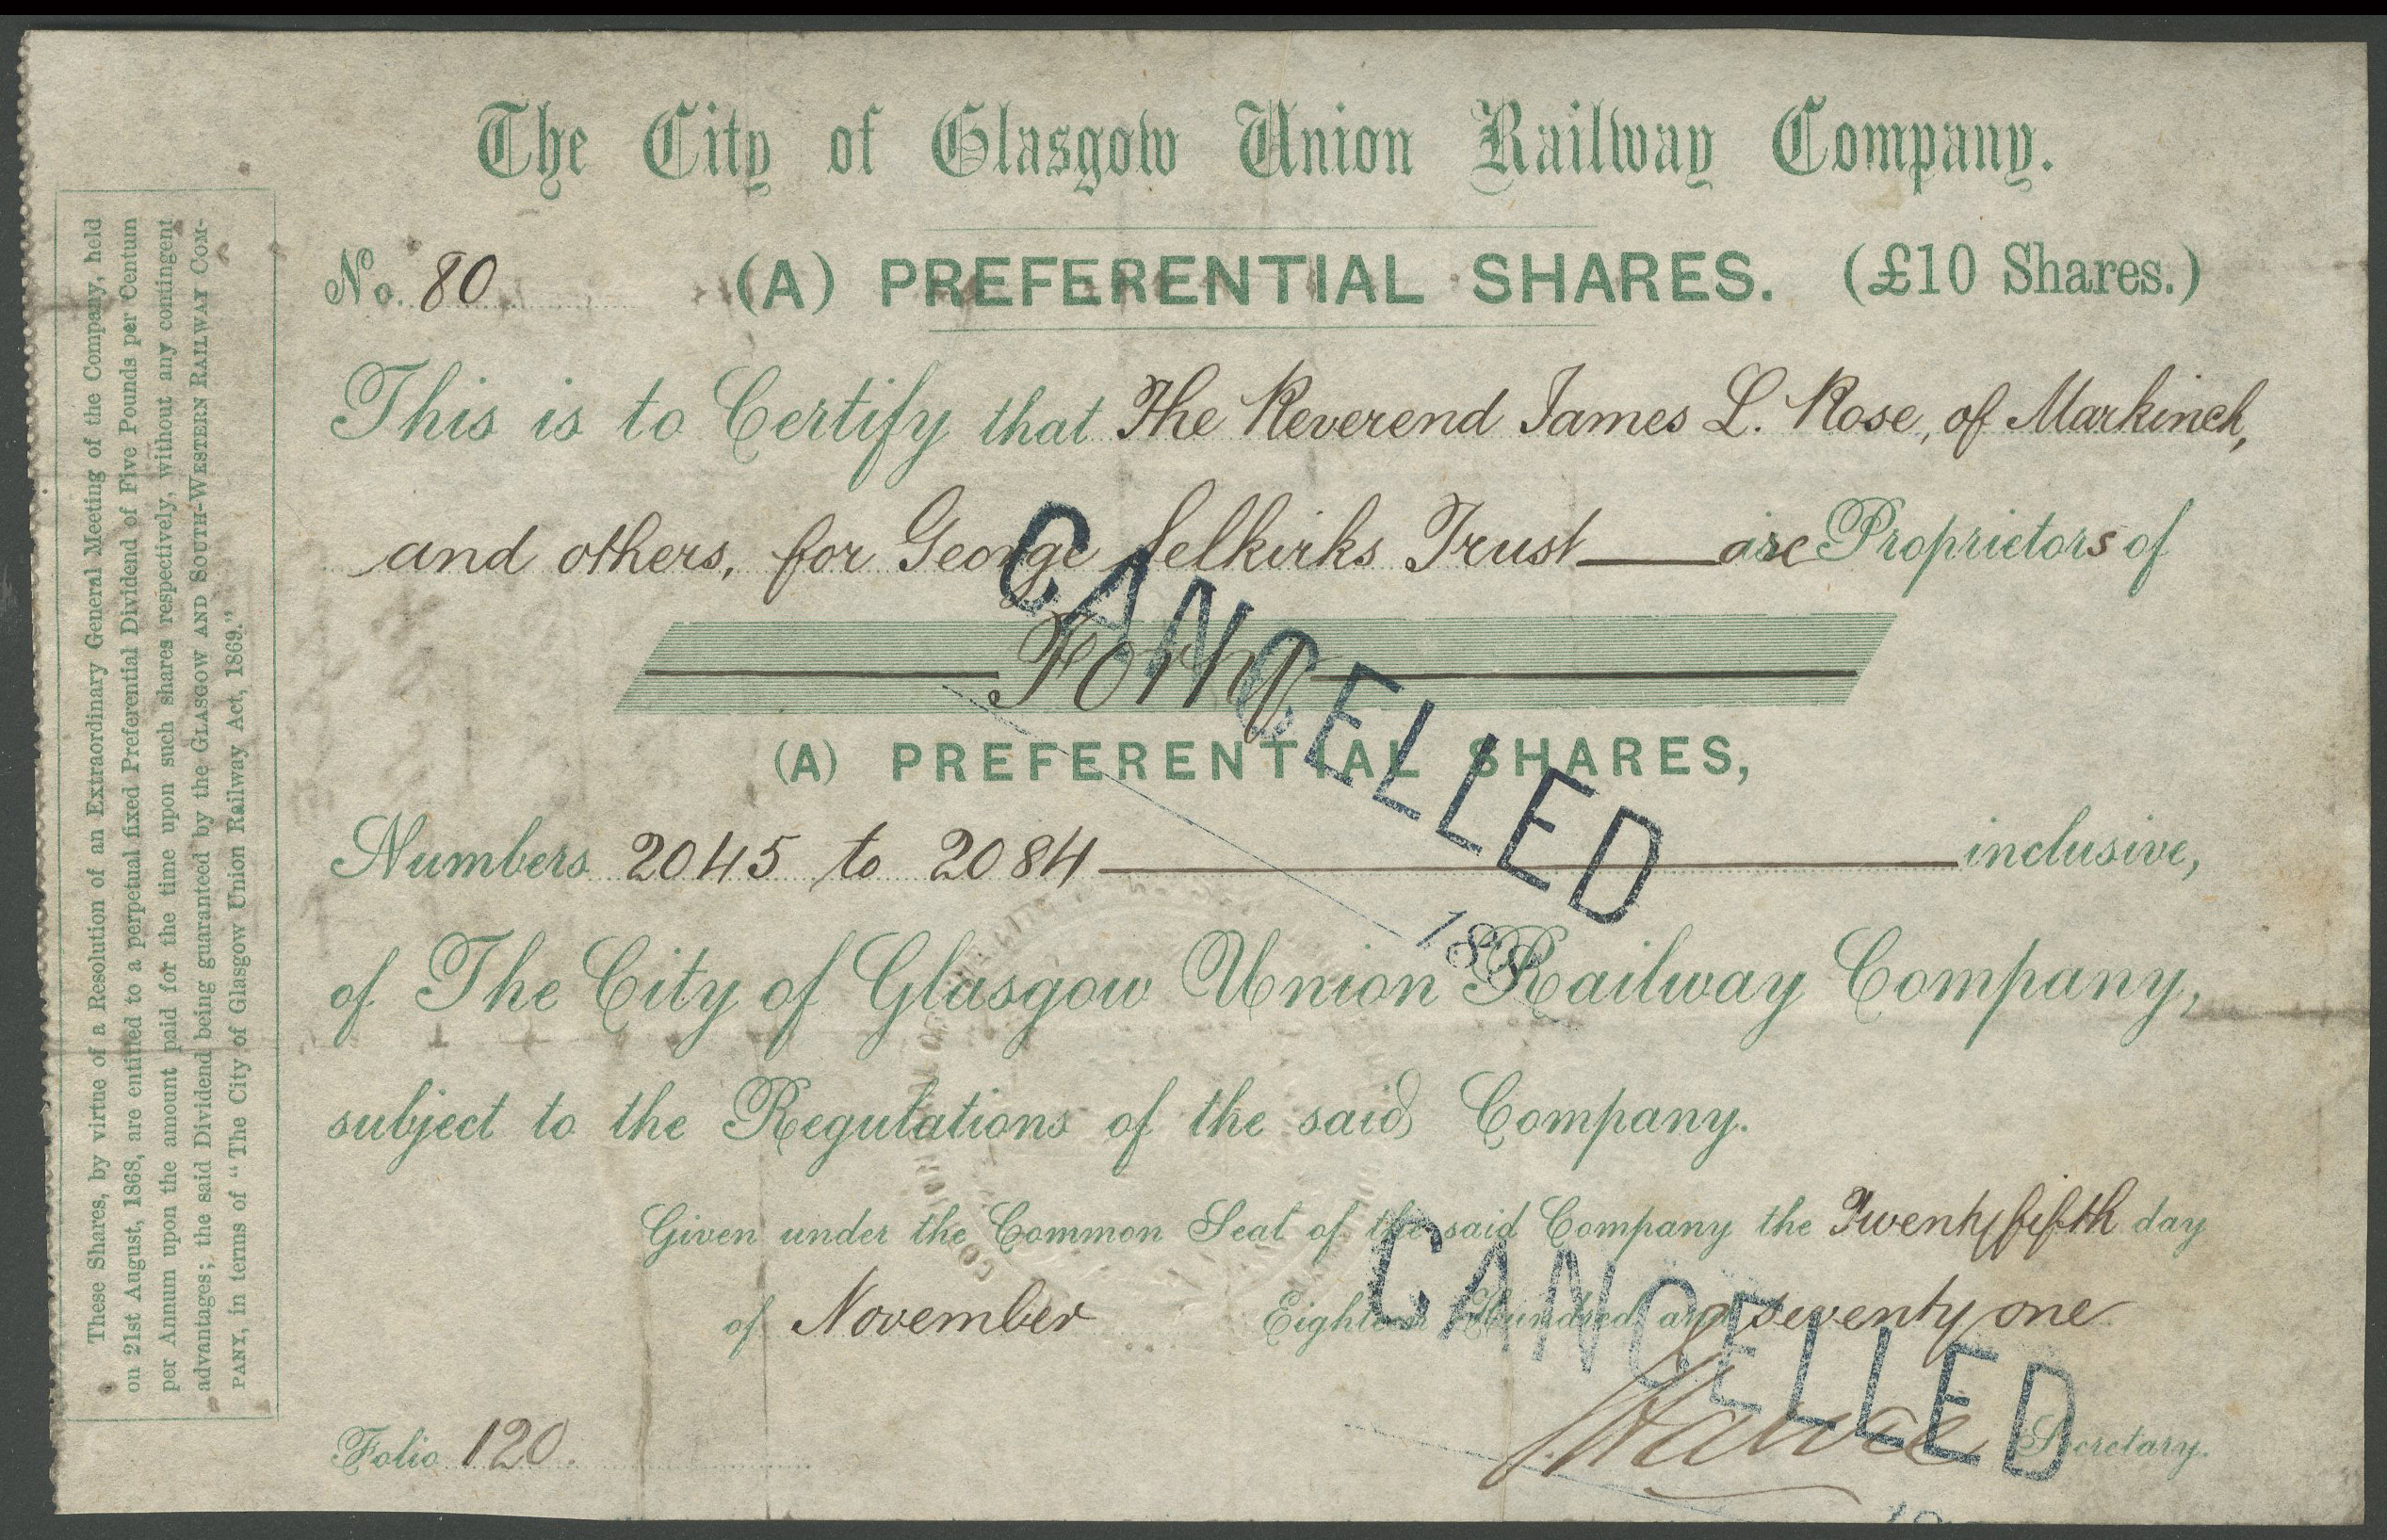 The City of Glasgow Union Railway Company.
No. 80 (A) PREFERENTIAL SHARES. (£10 Shares.)
This is to Certify that The Reverend James L. Rose, of Markinch,
and others, for George Selkirks Trust are Proprietors of
Forty
(A) PREFERENTIAL SHARES,
Numbers 2045 to 2084 inclusive,
of The City of Glasgow Union Railway Company,
subject to the Regulations of the said Company.
Given under the Common Seal of the said Company the Twenty fifth day
of November Eighteen Hundred and seventy one
Secretary.
Folio 120.
CANCELLED
188
CANCELLED
These Shares, by virtue of a Resolution of an Extraordinary General Meeting of the Company, held
on 21st August, 1868, are entitled to a perpetual fixed Preferential Dividend of Five Pounds per Centum
per Annum upon the amount paid for the time upon such shares respectively, without any contingent
advantages; the said Dividend being guaranteed by the GLASGOW AND SOUTH-WESTERN RAILWAY COM-
PANY, in terms of "The City of Glasgow Union Railway Act, 1869."